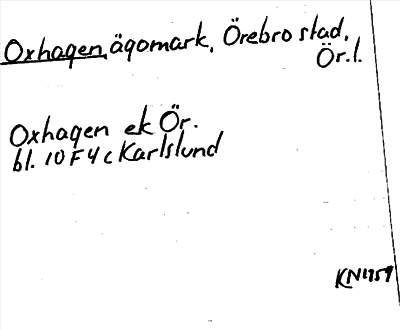 Oxhagen, ägomark, Örebro stad,
Ör.l.
Oxhagen ek Ör.
bl. 10 F 4 c Karlslund
KN1959